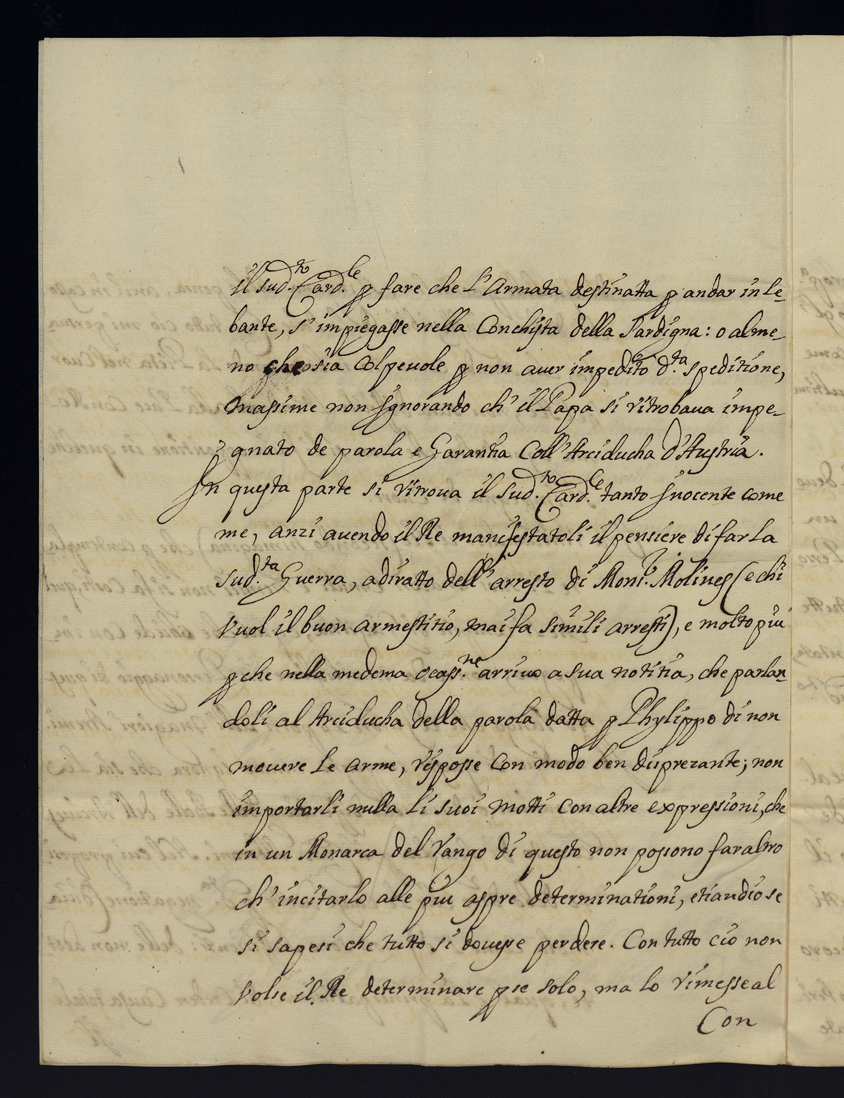 il sud.to Card.le p fare che l'Armata destinatta p andar in le-
bante, s'impiegasse nella Conchista della Sardigna: o alme-
no che sia Colpevole p non aver impedito d.ta speditione,
massime non ignorando ch'il Papa si ritrobava impe-
gnato de parola e Garantia Coll'Arciducha d'Austria.
In questa parte si ritrova il sud.to Card.le tanto inocente come
me, anzi avendo il Re manifestatoli il pensiere di far la
sud.ta Guerra, adiratto dell'arresto di Mons.r Molines (e chi
vuol il buon armestitio, mai fa simili arresti), e molto piu
p che nella medema ocass.ne arrivo a sua notitia, che parlan-
doli al Arciducha della parola datta p Phylippo di non
movere le arme, respose con modo ben disprezante; non
importarli nulla li suoi motti con altre expressioni, che
in un Monarca del rango di questo non possono far altro
ch'incitarlo alle piu aspre determinationi, etiandio se
si sapesi che tutto si dovesse perdere. Con tutto cio non
volse il Re determinare p se solo, ma lo rimesse al
Con